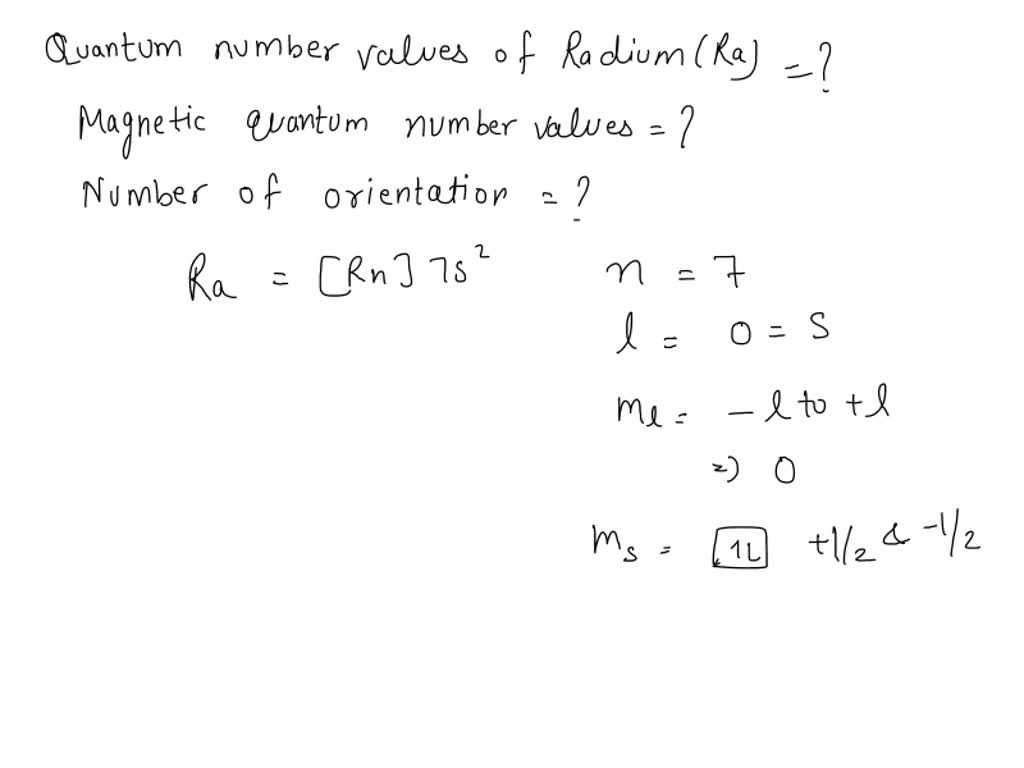 Quantum number values of Radium (Ra) = ?
Magnetic quantum number values = ?
Number of orientation = ?
Ra = [Rn] 7s² n = 7
l = 0 = s
mₗ = - l to + l
=) 0
mₛ = 1L +1/2 & -1/2